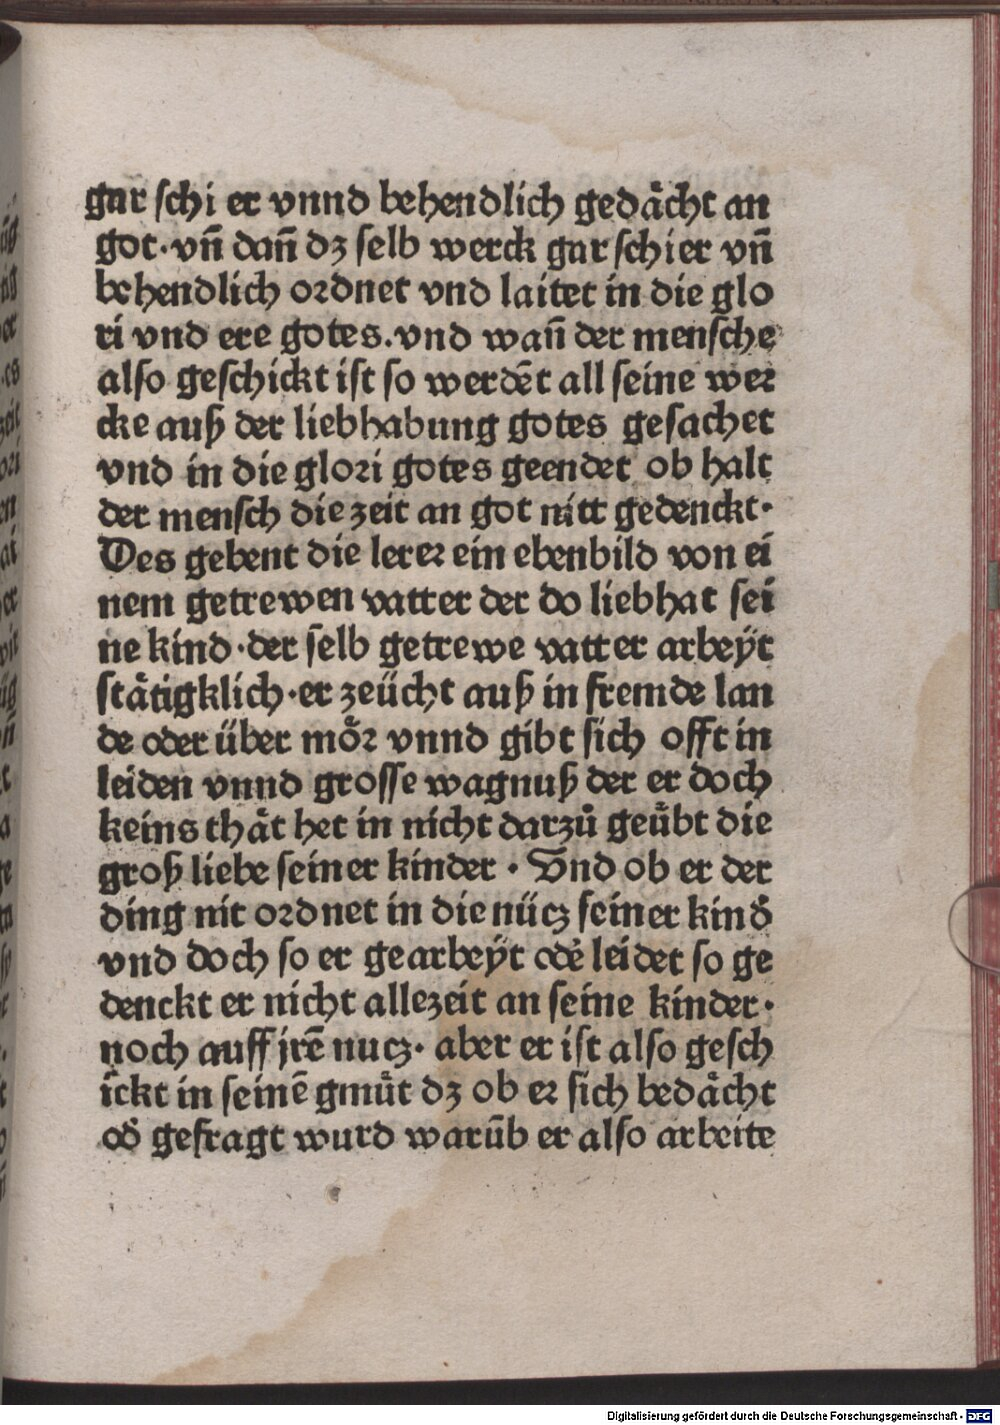 gar schi er vnnd behendlich gedaͤcht an
got·vn̄ dan̄ dʒ selb werck gar schier vn̄
behendlich ordnet vnd laitet in die glo
ri vnd ere gotes.vnd wan̄ der mensche
also geschickt ist so werdēt all seine wer
cke auß der liebhabung gotes gesachet
vnd in die glori gotes geendet ob halt
der mensch die zeit an got nitt gedenckt·
Des gebent die lerer ein ebenbild von ei
nem getrewen vatter der do liebhat sei
ne kind·der selb getrewe vatter arbeÿt
staͤtigklich·er zeücht auß in fremde lan
de oder über moͤr vnnd gibt sich offt in
leiden vnnd grosse wagnuß der er doch
keins thaͤt het in nicht darzuͦ geuͤbt die
groß liebe seiner kinder · Vnd ob er der
ding nit ordnet in die nücʒ seiner kind̓
vnd doch so er gearbeÿt od̓e leidet so ge
denckt er nicht allezeit an seine kinder·
noch auff jrē nucʒ· aber er ist also gesch
ickt in seinē gmuͤt dʒ ob er sich bedaͤcht
od̓ gefragt wurd warūb er also arbeite
Digitalisierung gefördert durch die Deutsche Forschungsgemeinschaft - DFG